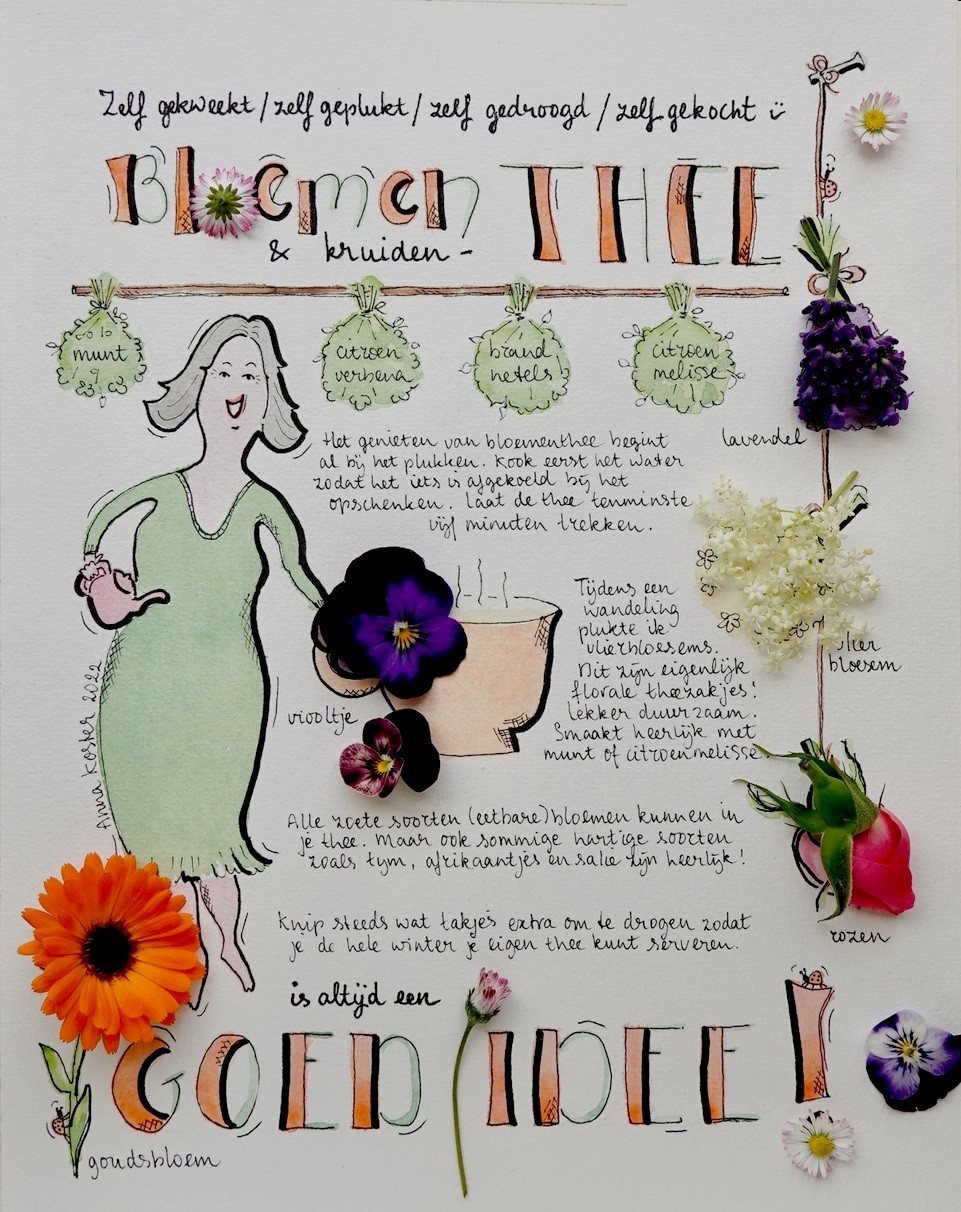 Zelf gekweekt / zelf geplukt / zelf gedroogd / zelf gekocht
Bloemen THEE
& kruiden -
munt
citroen
verbena
brand
netels
citroen
melisse
lavendel
Het genieten van bloementhee begint
al bij het plukken. Kook eerst het water
zodat het iets is afgekoeld bij het
opschenken. Laat de thee tenminste
vijf minuten trekken.
Tijdens een
wandeling
plukte ik
vlierbloesems.
Dit zijn eigenlijk
florale theezakjes!
Lekker duurzaam.
Smaakt heerlijk met
munt of citroenmelisse.
vlier
bloesem
viooltje
Anna Koster 2022
Alle zoete soorten (eetbare) bloemen kunnen in
je thee. Maar ook sommige hartige soorten
zoals tym, afrikaantjes en salie zijn heerlijk!
rozen
Knip steeds wat takjes extra om te drogen zodat
je de hele winter je eigen thee kunt serveren.
is altijd een
GOED IDEE!
goudsbloem